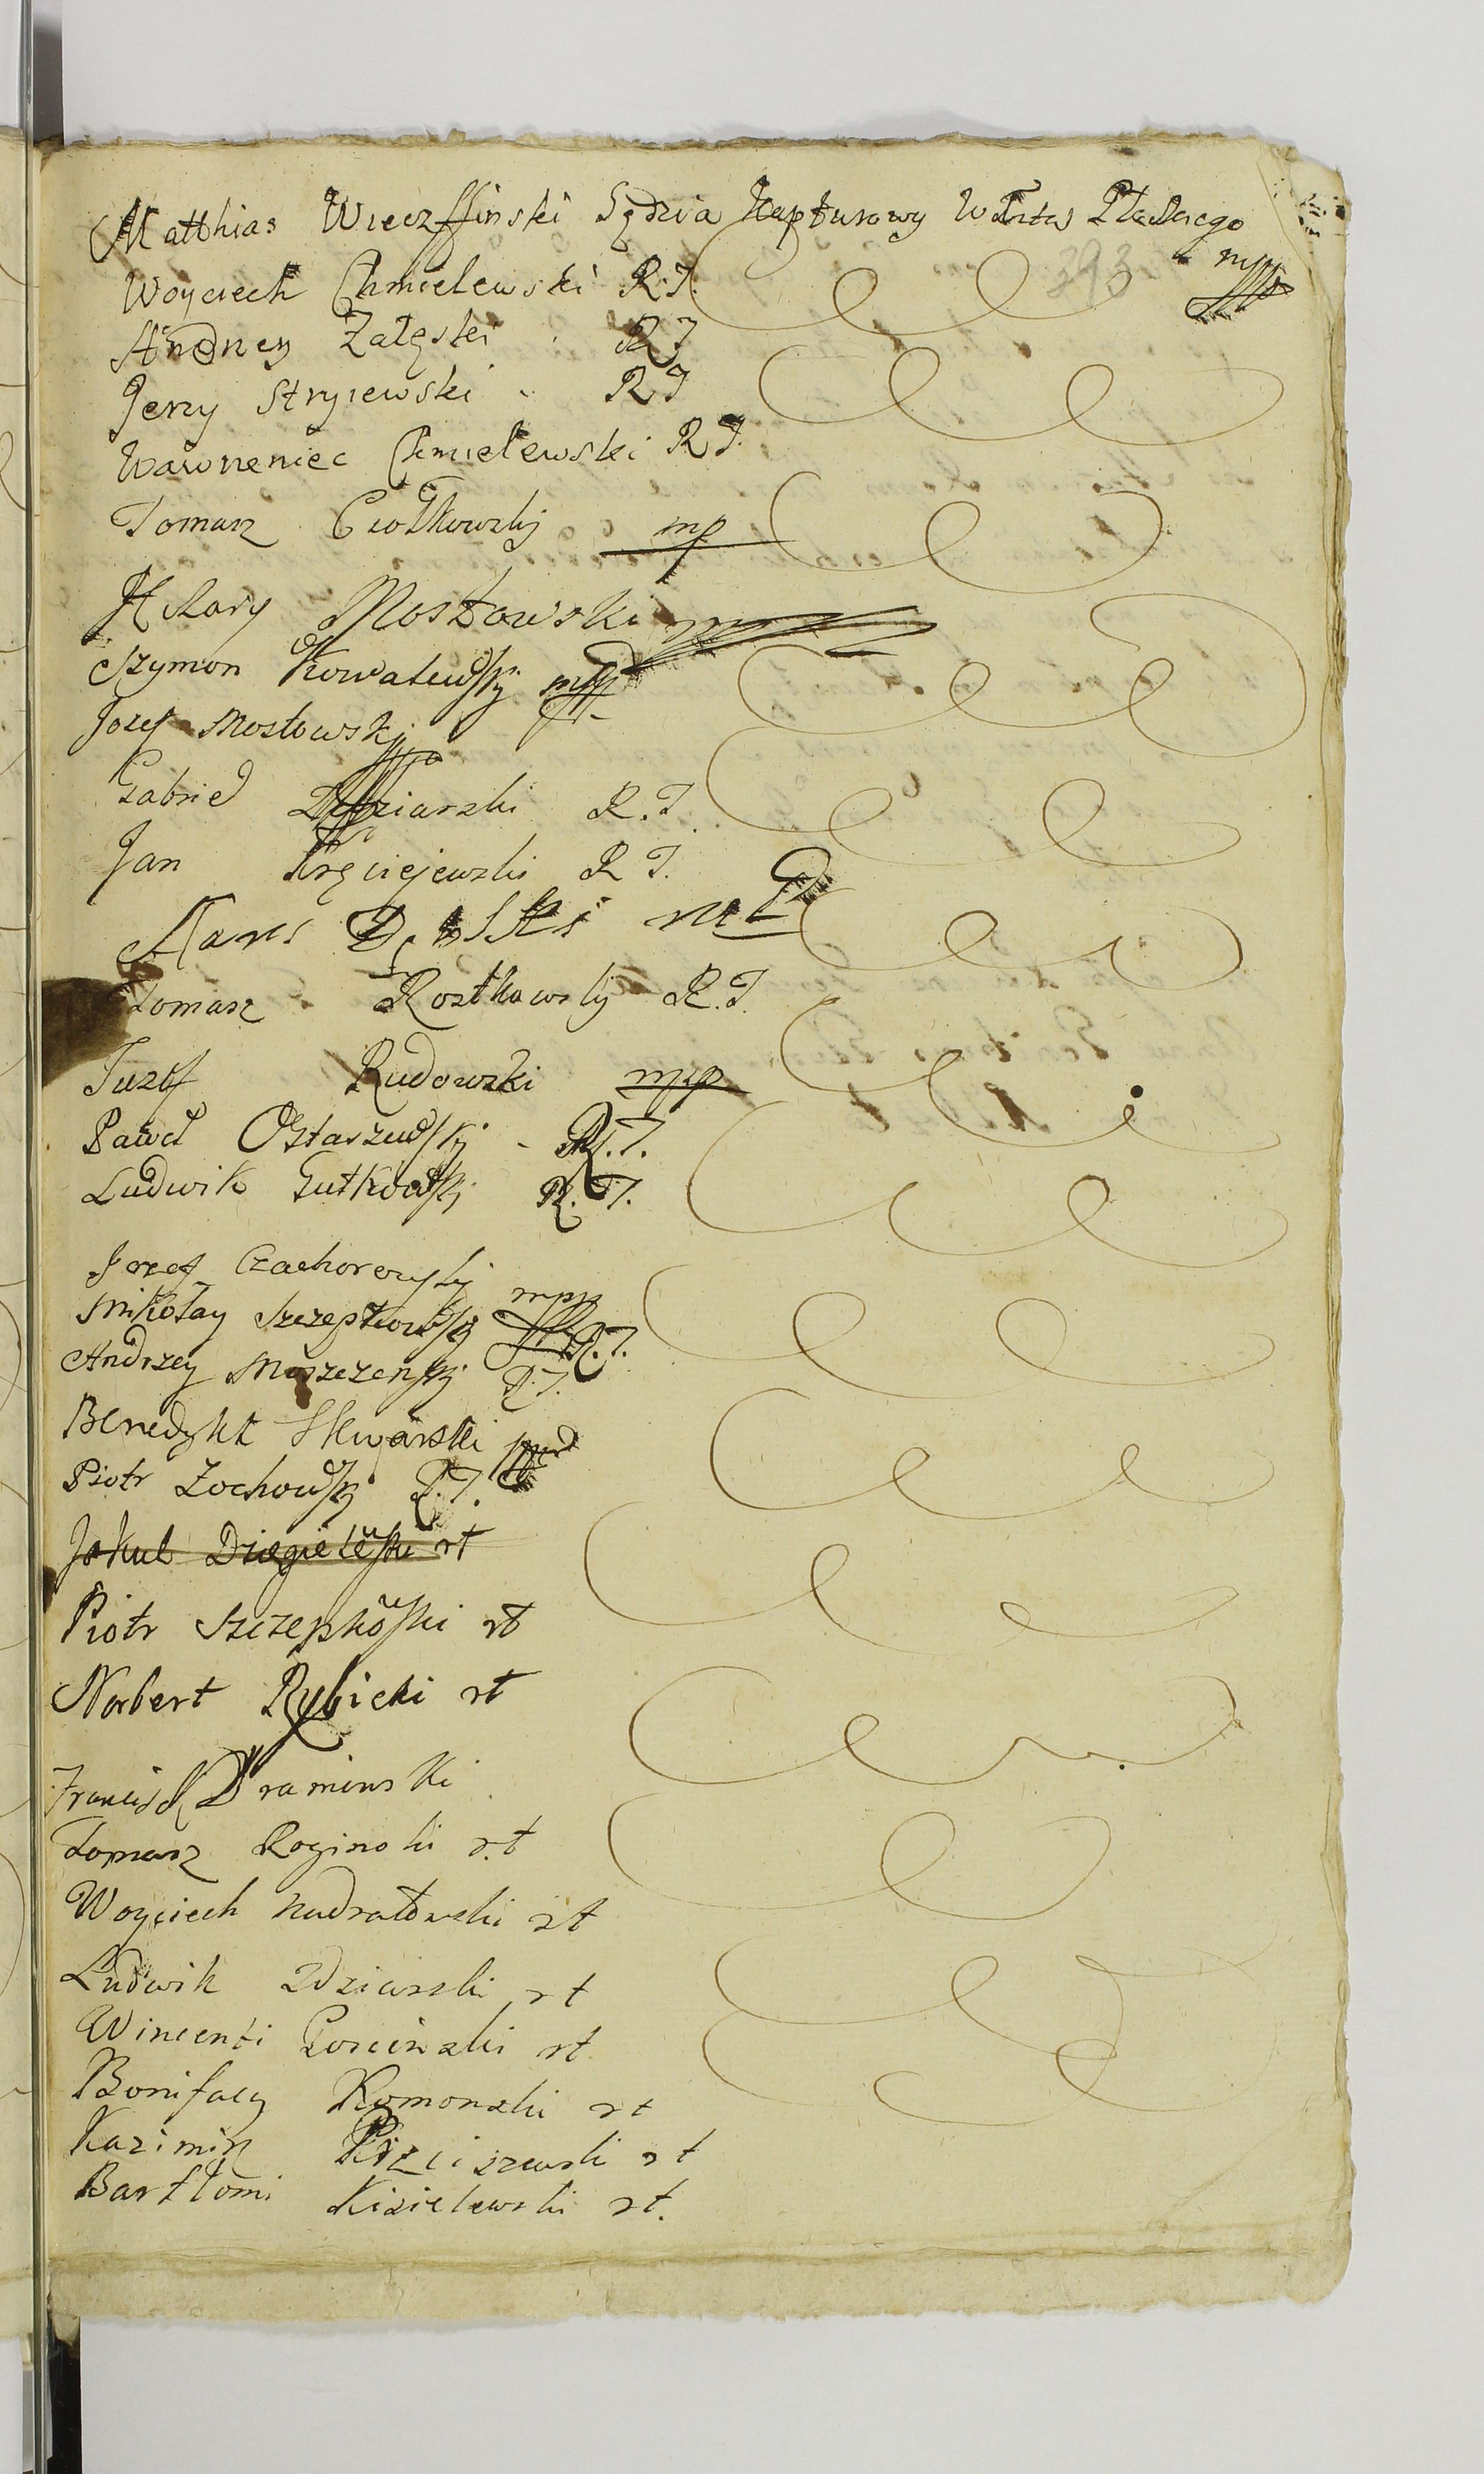 Matthias Wieczffinski Sędzia Kapturowy
393
Woyciech Chmielewski R.T.
mpp
Andrzey Załęski R T
Jerzy Stryiewski R T
Wawrzeniec Chmielewski R T.
Tomasz Ciołkowskj mp
Hilary Mostowski
Szymon Kowalewskj mpp
Jozef Mostowskj
Gabriel R. T.
Jan R T.
mp
Tomasz Rostkowskj R. T.
Juzef Rudowski mpp
Paweł Ostaszewskj - R. T.
Ludwik Gutkowskj R. T.
Jozef Czachorowskj mpp
Mikołay Szczepkowskj R. T.
Andrzey Moszczenskj R. T.
Benedykt Skwarski
Piotr Zochowskj R. T.
Jakub Dziegielewski rt
Piotr Szczepkowski rt
Norbert Rybicki rt
Draminski
Tomasz Roginski r.t
Woyciech rt
Ludwik Zdziarski rt
Wincenti Goscinski rt
Bonifacy Romonski rt
Kazimirz rt
Bartłomi Kisielewski rt.